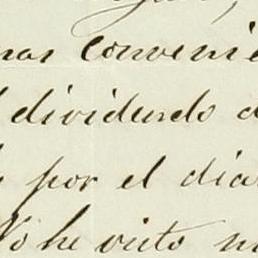 mas convenie
dividendo d
por el dia
No he visto n